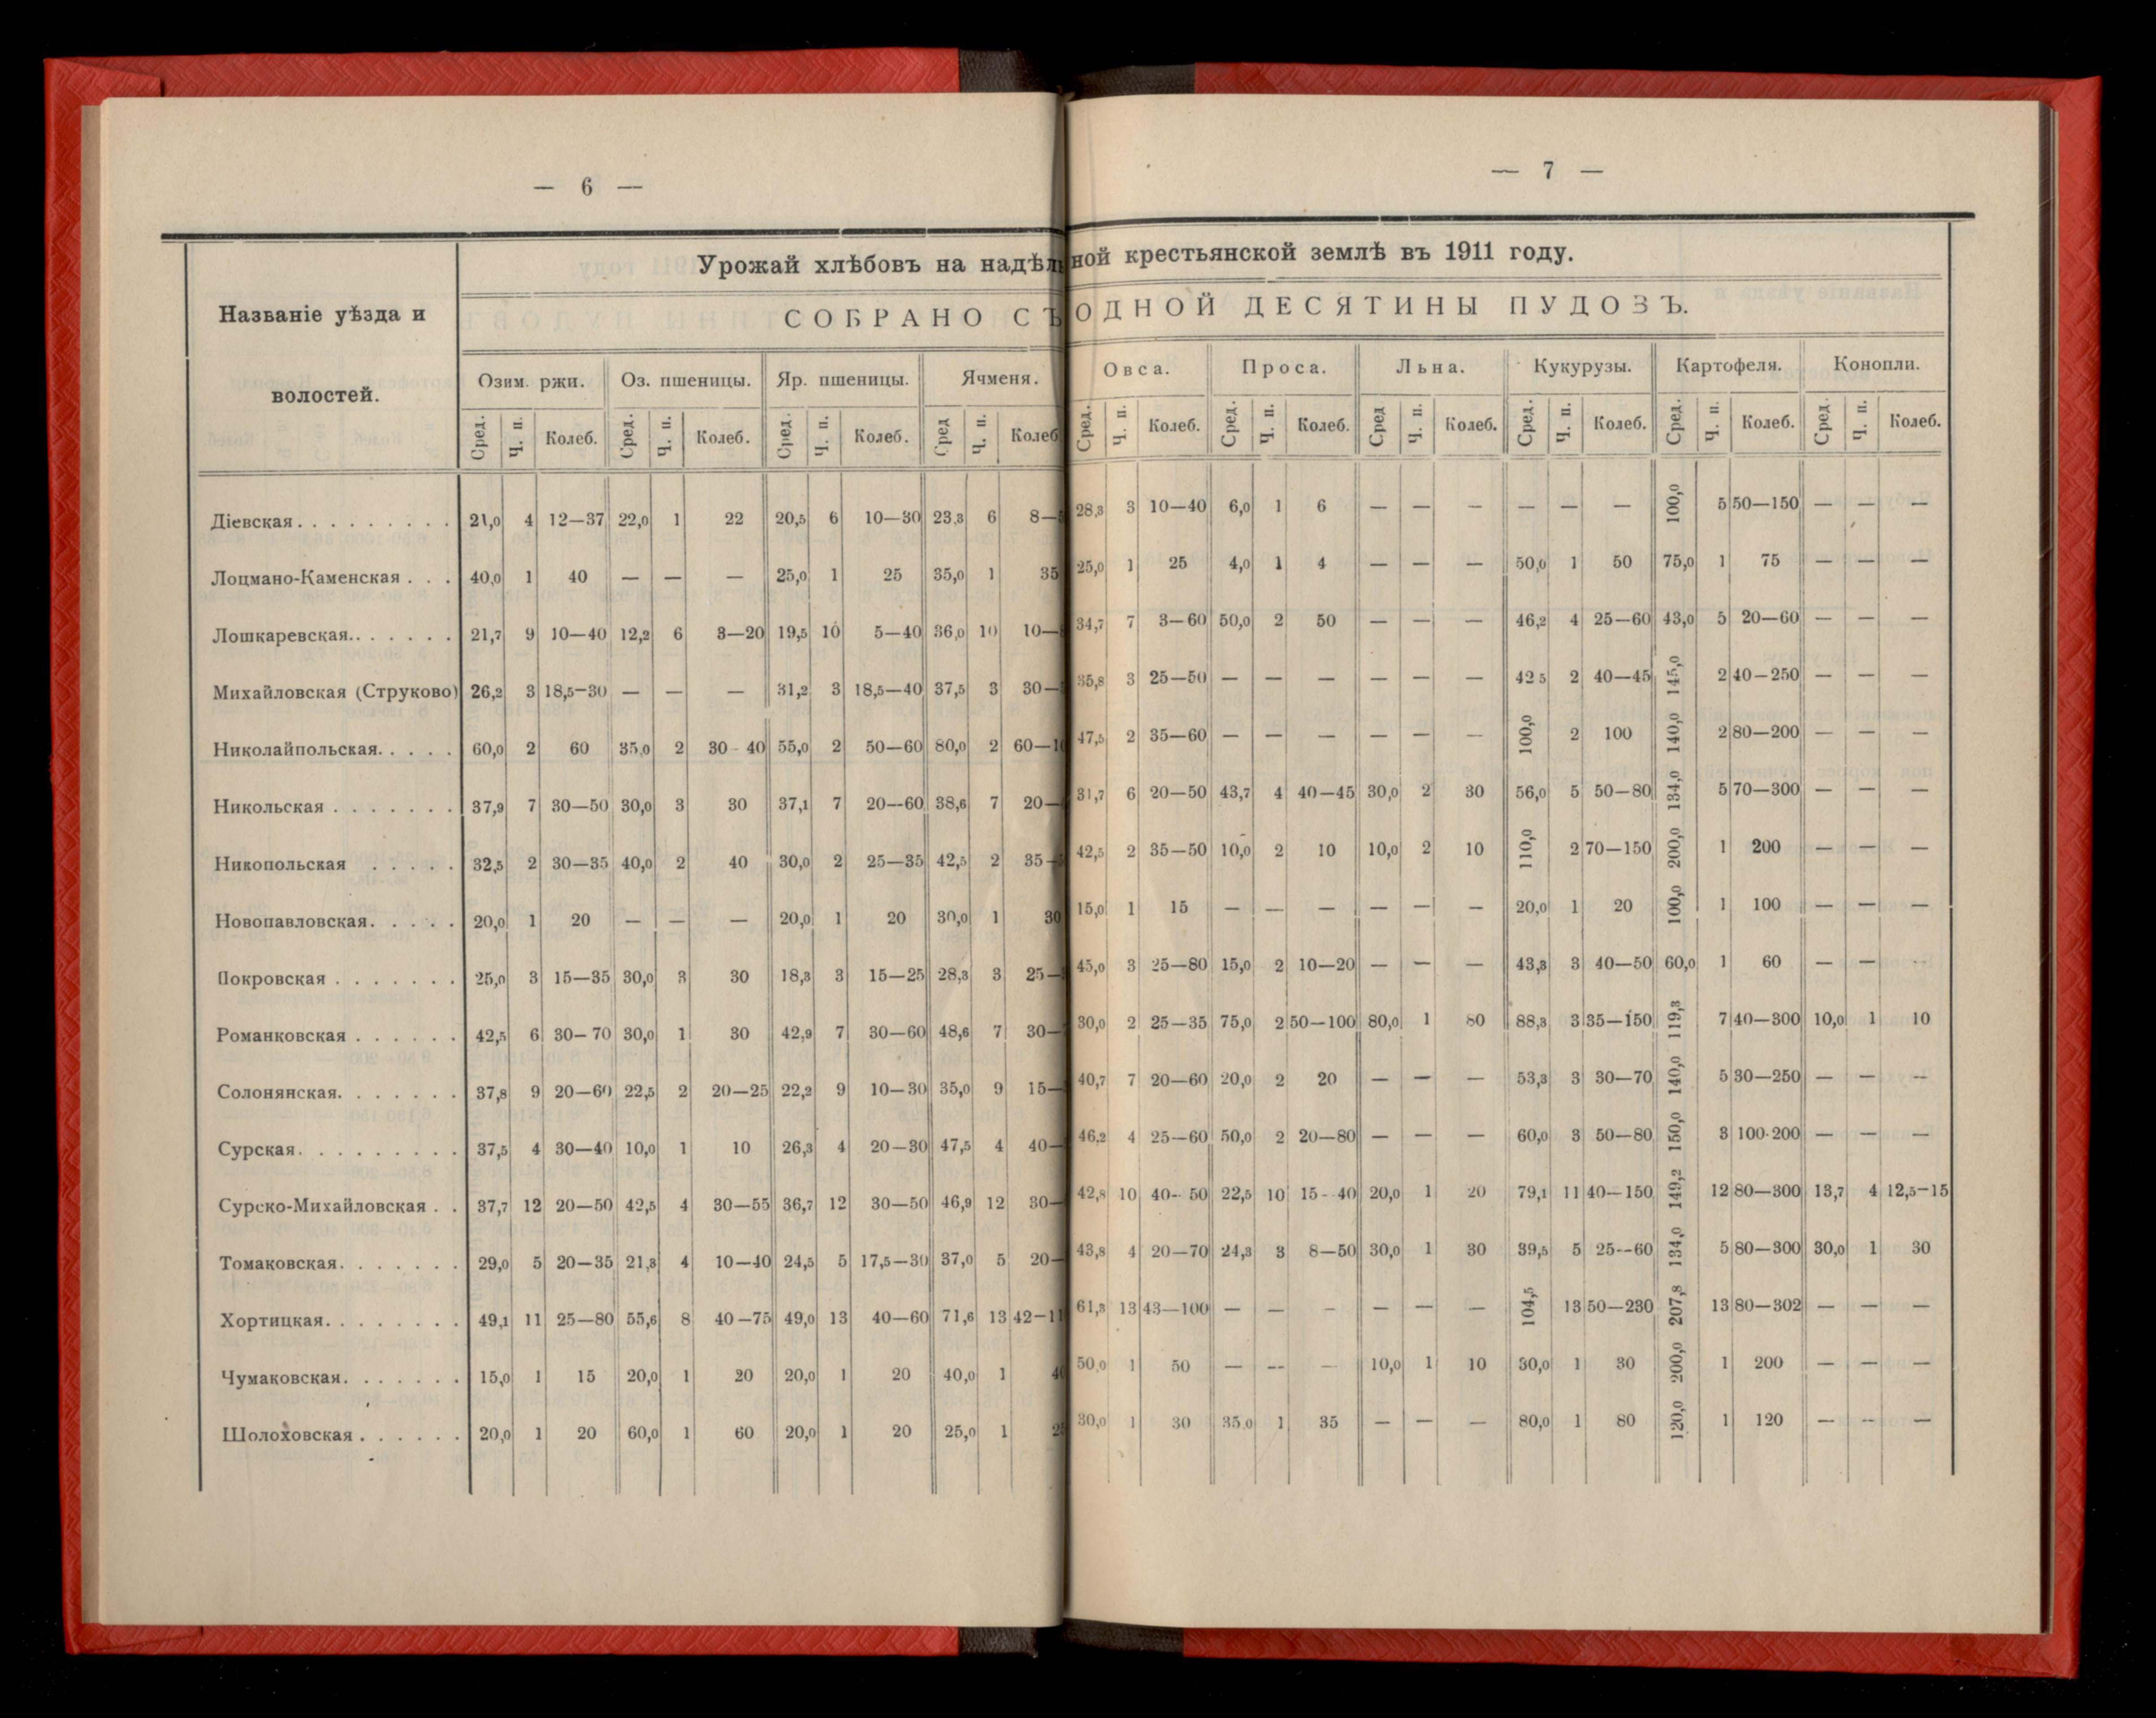 — 6 —
— 7 —
Урожай хлѣбовъ на надѣльной крестьянской землѣ въ 1911 году.
Названіе уѣзда и волостей.
СОБРАНО СЪ ОДНОЙ ДЕСЯТИНЫ ПУДОВЪ.
Озим. ржи. Оз. пшеницы. Яр. пшеницы. Ячменя. Овса. Проса. Льна. Кукурузы. Картофеля. Конопли.
Сред. Ч. п. Колеб. Сред. Ч. п. Колеб. Сред. Ч. п. Колеб. Сред Ч. п. Колеб Сред. Ч. п. Колеб. Сред. Ч. п. Колеб. Сред Ч. п. Колеб. Сред. Ч. п. Колеб. Сред. Ч. п. Колеб. Сред. Ч. п. Колеб.
Діевская......... 21,0 4 12—37 22,0 1 22 20,5 6 10—30 23,3 6 8— 28,3 3 10—40 6,0 1 6 — — — — — — 100,0 5 50—150 — — —
Лоцмано-Каменская... 40,0 1 40 — — — 25,0 1 25 35,0 1 35 25,0 1 25 4,0 1 4 — — — 50,0 1 50 75,0 1 75 — — —
Лошкаревская....... 21,7 9 10—40 12,2 6 3—20 19,5 10 5—40 36,0 10 10— 34,7 7 3—60 50,0 2 50 — — — 46,2 4 25—60 43,0 5 20—60 — — —
Михайловская (Струково) 26,2 3 18,5—30 — — — 31,2 3 18,5—40 37,5 3 30— 35,8 3 25—50 — — — — — — 42 5 2 40—45 145,0 2 40—250 — — —
Николайпольская..... 60,0 2 60 35,0 2 30-40 55,0 2 50—60 80,0 2 60— 47,5 2 35—60 — — — — — — 100,0 2 100 140,0 2 80—200 — — —
Никольская....... 37,9 7 30—50 30,0 3 30 37,1 7 20—60 38,6 7 20— 31,7 6 20—50 43,7 4 40—45 30,0 2 30 56,0 5 50—80 134,0 5 70—300 — — —
Никопольская ..... 32,5 2 30—35 40,0 2 40 30,0 2 25—35 42,5 2 35— 42,5 2 35—50 10,0 2 10 10,0 2 10 110,0 2 70—150 200,0 1 200 — — —
Новопавловская..... 20,0 1 20 — — — 20,0 1 20 30,0 1 30 15,0 1 15 — — — — — — 20,0 1 20 100,0 1 100 — — —
Покровская....... 25,0 3 15—35 30,0 3 30 18,3 3 15—25 28,3 3 25— 45,0 3 25—80 15,0 2 10—20 — — — 43,3 3 40—50 60,0 1 60 — — —
Романковская...... 42,5 6 30—70 30,0 1 30 42,9 7 30—60 48,6 7 30— 30,0 2 25—35 75,0 2 50—100 80,0 1 80 88,3 3 35—150 119,3 7 40—300 10,0 1 10
Солонянская....... 37,8 9 20—60 22,5 2 20—25 22,2 9 10—30 35,0 9 15— 40,7 7 20—60 20,0 2 20 — — — 53,3 3 30—70 140,0 5 30—250 — — —
Сурская......... 37,5 4 30—40 10,0 1 10 26,3 4 20—30 47,5 4 40— 46,2 4 25—60 50,0 2 20—80 — — — 60,0 3 50—80 150,0 3 100-200 — — —
Сурско-Михайловская.. 37,7 12 20—50 42,5 4 30—55 36,7 12 30—50 46,9 12 30— 42,8 10 40—50 22,5 10 15—40 20,0 1 20 79,1 11 40—150 149,2 12 80—300 13,7 4 12,5—15
Томаковская....... 29,0 5 20—35 21,3 4 10—40 24,5 5 17,5—30 37,0 5 20— 43,8 4 20—70 24,3 3 8—50 30,0 1 30 39,5 5 25—60 134,0 5 80—300 30,0 1 30
Хортицкая........ 49,1 11 25—80 55,6 8 40—75 49,0 13 40—60 71,6 13 42— 61,3 13 43—100 — — — — — — 104,5 13 50—230 207,8 13 80—302 — — —
Чумаковская....... 15,0 1 15 20,0 1 20 20,0 1 20 40,0 1 40 50,0 1 50 — — — 10,0 1 10 30,0 1 30 200,0 1 200 — — —
Шолоховская...... 20,0 1 20 60,0 1 60 20,0 1 20 25,0 1 25 30,0 1 30 35,0 1 35 — — — 80,0 1 80 120,0 1 120 — — —